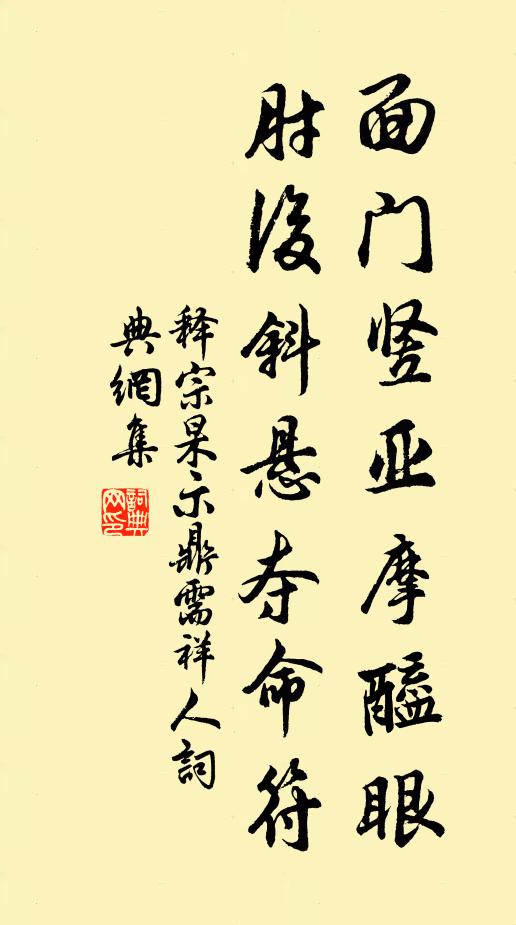 面门竖亚摩醯眼
肘後斜悬夺命符
释宗杲示鼎需祥人詞
典網集
詞典网印